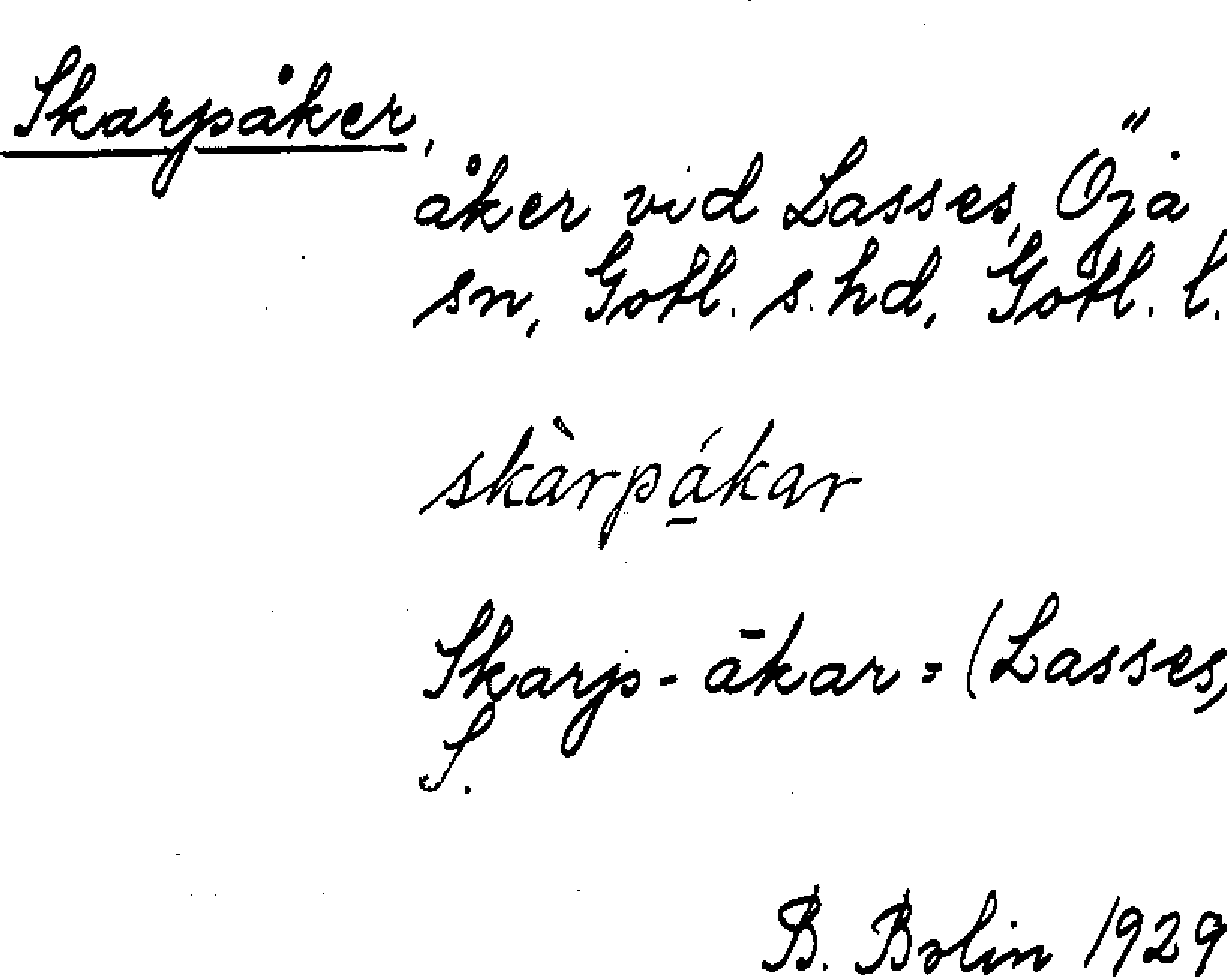 Skarpåker,
åker vid Lasses, Öja
sn, Gotl. s. hd, Gotl. l.
skàrpá̱kar
Skarp-ākar = (Lasses,
S.
B. Bolin 1929